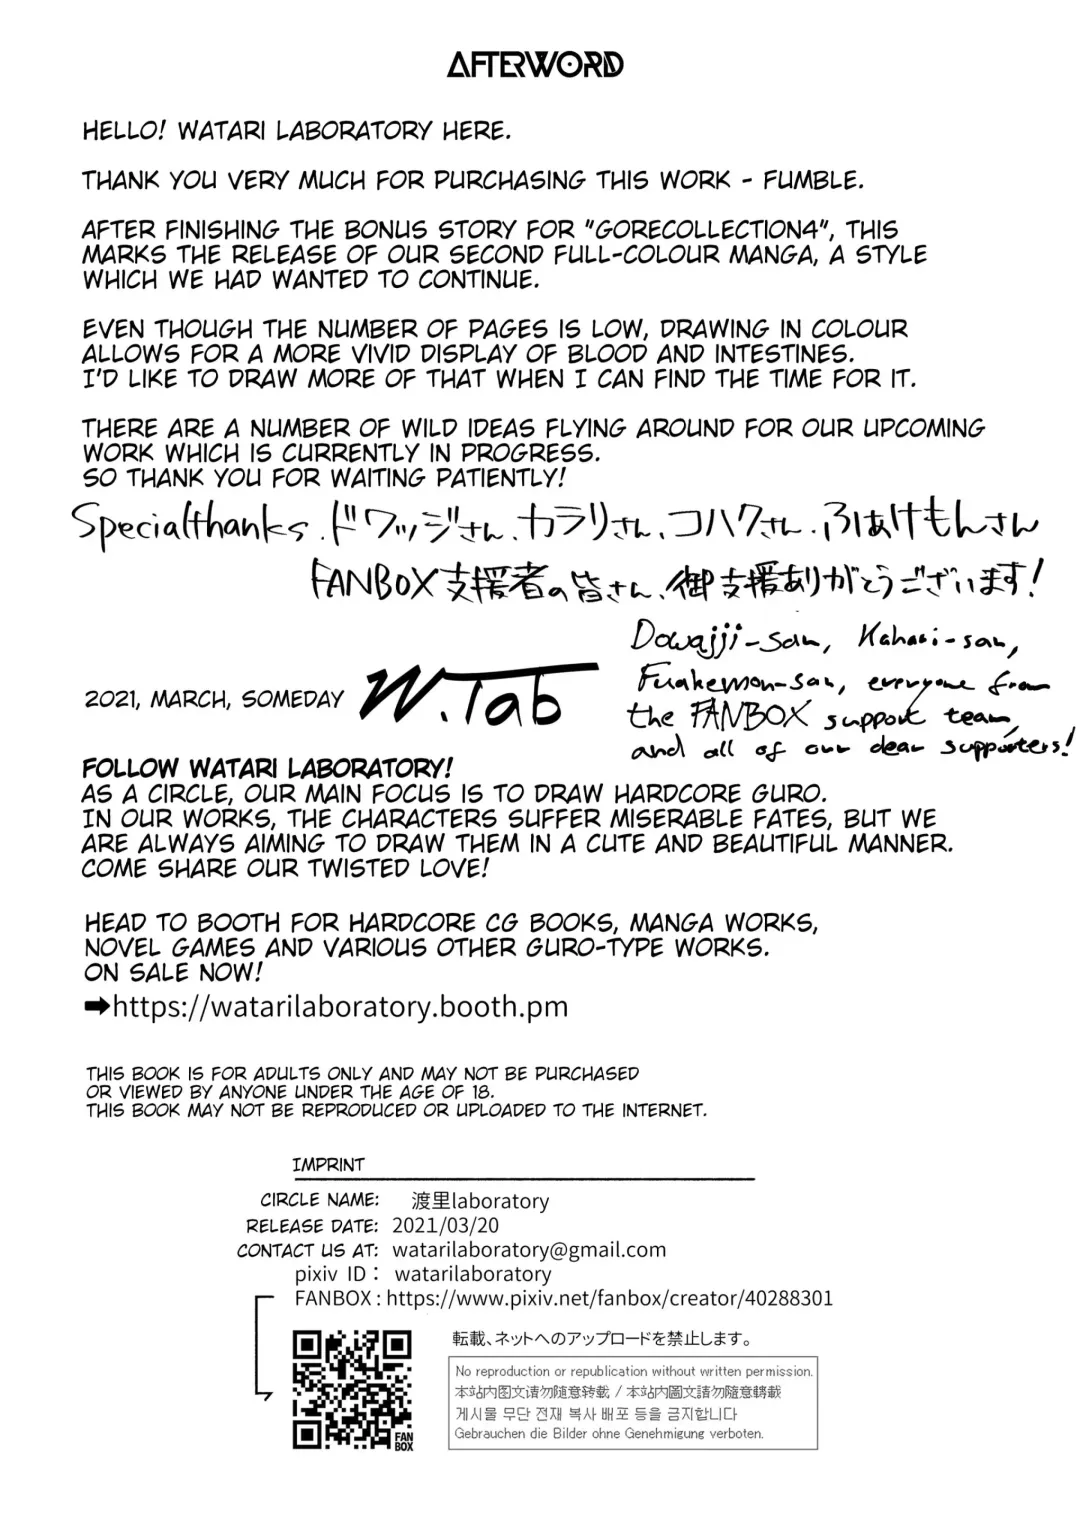 AFTERWORD
HELLO! WATARI LABORATORY HERE.
THANK YOU VERY MUCH FOR PURCHASING THIS WORK - FUMBLE.
AFTER FINISHING THE BONUS STORY FOR "GORECOLLECTION4", THIS
MARKS THE RELEASE OF OUR SECOND FULL-COLOUR MANGA, A STYLE
WHICH WE HAD WANTED TO CONTINUE.
EVEN THOUGH THE NUMBER OF PAGES IS LOW, DRAWING IN COLOUR
ALLOWS FOR A MORE VIVID DISPLAY OF BLOOD AND INTESTINES.
I'D LIKE TO DRAW MORE OF THAT WHEN I CAN FIND THE TIME FOR IT.
THERE ARE A NUMBER OF WILD IDEAS FLYING AROUND FOR OUR UPCOMING
WORK WHICH IS CURRENTLY IN PROGRESS.
SO THANK YOU FOR WAITING PATIENTLY!
Specialthanks.ドワッジさん、カラリさん、コハクさん.ふあけもんさん
FANBOX支援者の皆さん、御支援ありがとうございます!
Dowajji-san, Kahari-san,
Fuakemon-san, everyone from
the FANBOX support team,
and all of our dear supporters!
2021, MARCH, SOMEDAY W.lab
FOLLOW WATARI LABORATORY!
AS A CIRCLE, OUR MAIN FOCUS IS TO DRAW HARDCORE GURO.
IN OUR WORKS, THE CHARACTERS SUFFER MISERABLE FATES, BUT WE
ARE ALWAYS AIMING TO DRAW THEM IN A CUTE AND BEAUTIFUL MANNER.
COME SHARE OUR TWISTED LOVE!
HEAD TO BOOTH FOR HARDCORE CG BOOKS, MANGA WORKS,
NOVEL GAMES AND VARIOUS OTHER GURO-TYPE WORKS.
ON SALE NOW!
➡https://watarilaboratory.booth.pm
THIS BOOK IS FOR ADULTS ONLY AND MAY NOT BE PURCHASED
OR VIEWED BY ANYONE UNDER THE AGE OF 18.
THIS BOOK MAY NOT BE REPRODUCED OR UPLOADED TO THE INTERNET.
IMPRINT
CIRCLE NAME: 渡里laboratory
RELEASE DATE: 2021/03/20
CONTACT US AT: watarilaboratory@gmail.com
pixiv ID： watarilaboratory
FANBOX : https://www.pixiv.net/fanbox/creator/40288301
FAN
BOX
転載、ネットへのアップロードを禁止します。
No reproduction or republication without written permission.
本站内图文请勿随意转载 / 本站内圖文請勿隨意轉載
게시물 무단 전재 복사 배포 등을 금지합니다
Gebrauchen die Bilder ohne Genehmigung verboten.